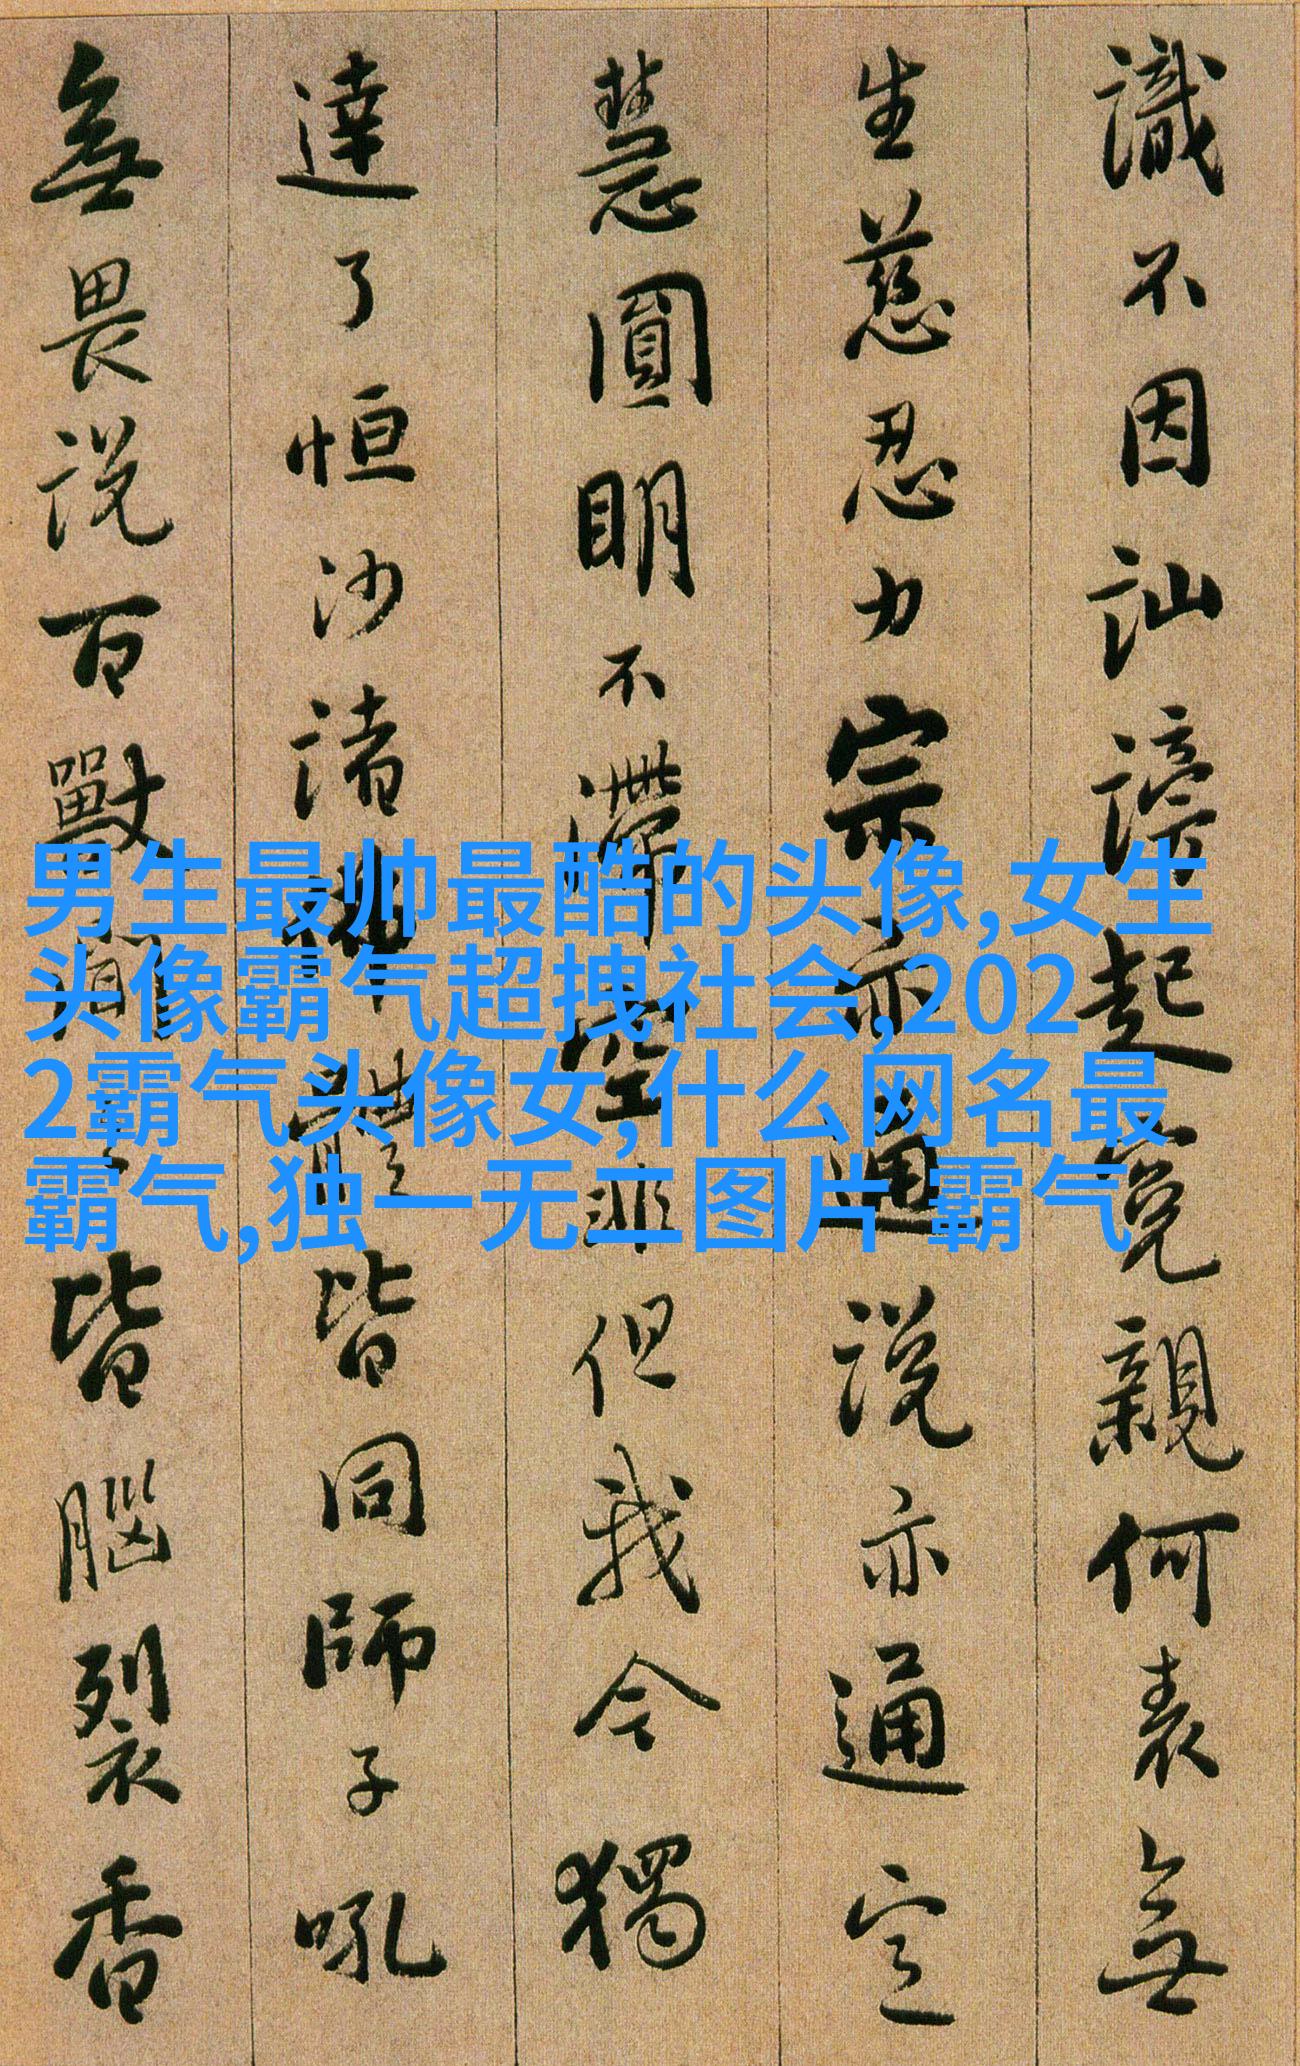 識不因訕謗起寃親何表無
生慈忍力宗亦通説亦通定
慧圓明不滯空非但我今獨
達了恒沙諸佛體皆同師子吼
無畏説百獸聞之皆腦裂香
男生最帅最酷的头像,女生
头像霸气超拽社会,202
2霸气头像女,什么网名最
霸气,独一无二图片 霸气